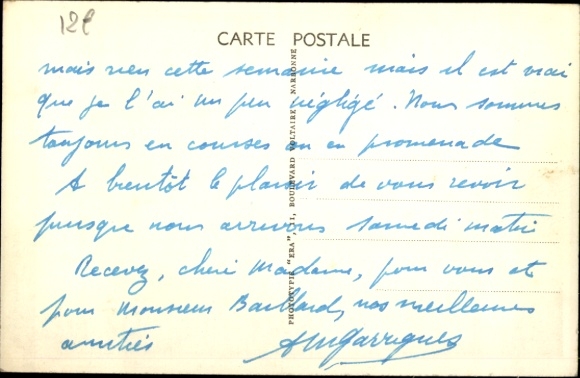 12€
CARTE POSTALE
mais rien cette semaine mais il est vrai
que je l'ai un peu négligé. Nous sommes
toujours en courses ou en promenade
A bientôt le plaisir de vous revoir
puisque nous arrivons samedi matin
Recevez, chère Madame, pour vous et
pour Monsieur Baillard, nos meilleures
amitiés
PHOTOTYPIE "ERA", 1, BOULEVARD VOLTAIRE NARBONNE